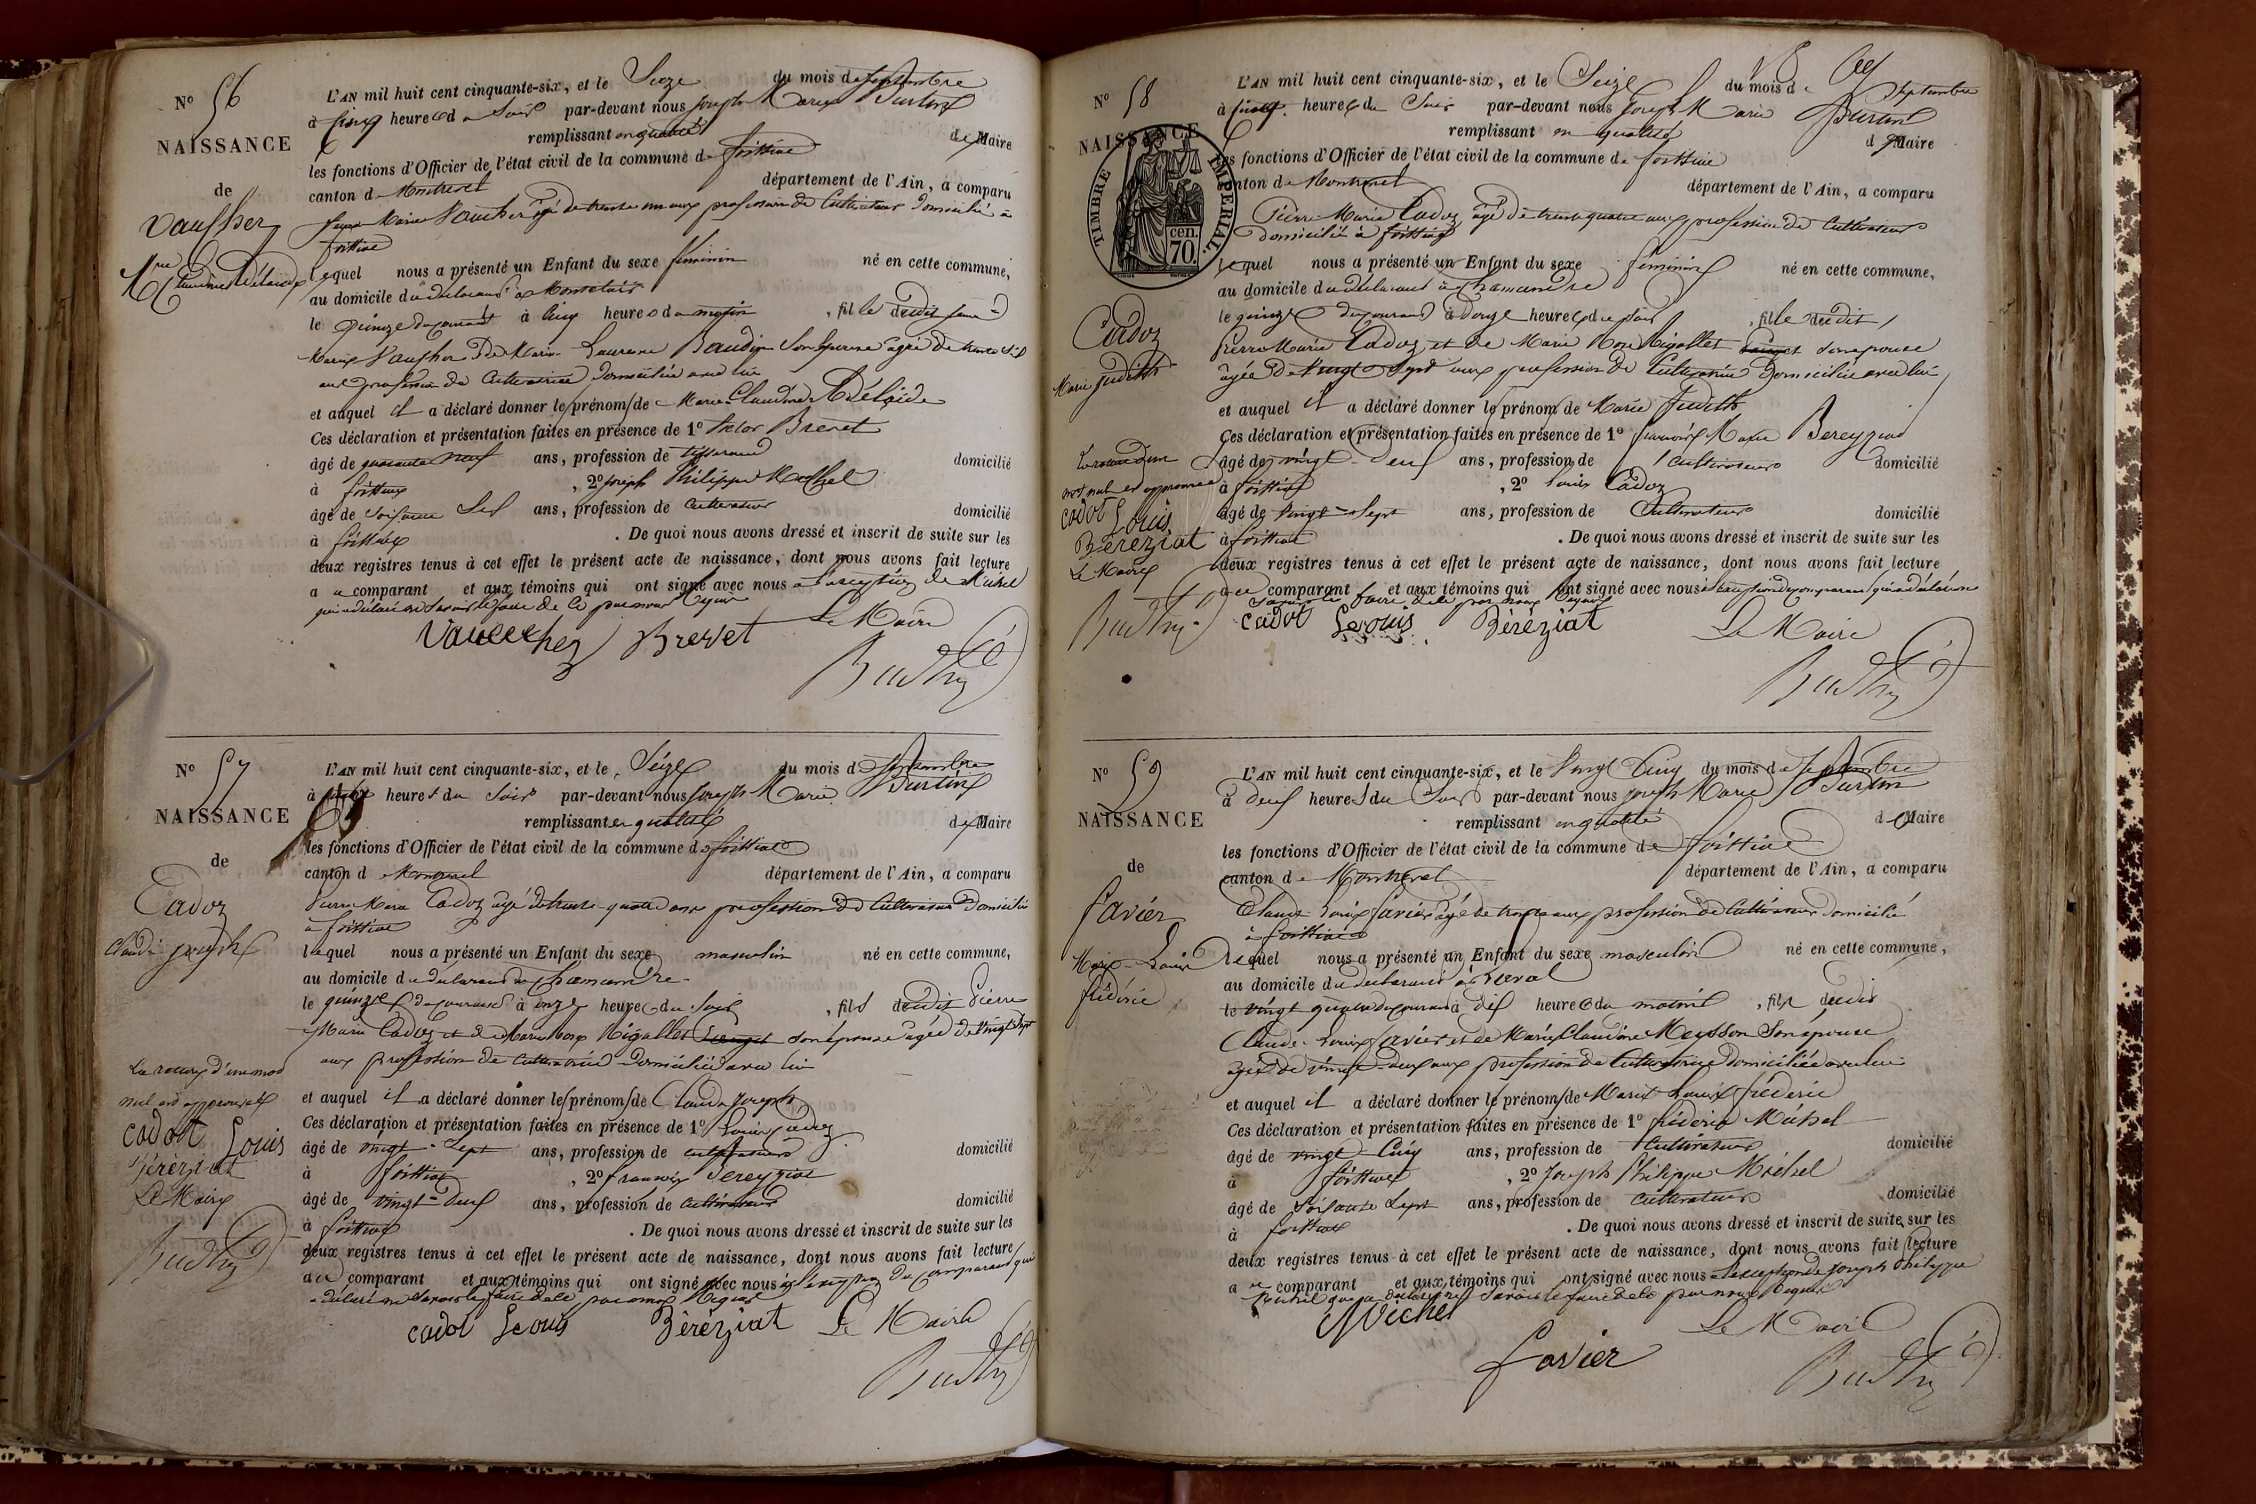 N° 56
NAISSANCE
de
Vaufher
Mie Claudine Adélaïde
L'AN mil huit cent cinquante-six, et le Seize du mois de Septembre
à cinq heures du Soir par-devant nous Joseph Marie Burtin
remplissant en qualité de Maire
les fonctions d'Officier de l'état civil de la commune de foissiat
canton de Montrevel département de l'Ain, a comparu
âgé de trente un ans profession de Cultivateur domicilié à
foissiat
lequel nous a présenté un Enfant du sexe féminin né en cette commune,
au domicile du déclarant à
le quinze du courant à cinq heures du matin, fille dudit
Marie Laurence Baudin Son épouse âgée de trente
ans profession de Cultivatrice domiciliée avec lui
et auquel il a déclaré donner le prénom de Marie Claudine Adélaïde
Ces déclaration et présentation faites en présence de 1° Victor Brevet
âgé de quarante neuf ans, profession de tisserand domicilié
à foissiat, 2° Joseph Philippe Michel
âgé de soixante Sept ans, profession de Cultivateur domicilié
à foissiat. De quoi nous avons dressé et inscrit de suite sur les
deux registres tenus à cet effet le présent acte de naissance, dont nous avons fait lecture
au comparant et aux témoins qui ont signé avec nous à l'exception de Michel
qui a déclaré ne Savoir le faire de ce par nous requis
Vaucher Brevet Le Maire
Burtin
N° 57
NAISSANCE
de
Cadoz
Claude joseph
L'AN mil huit cent cinquante-six, et le Seize du mois de Septembre
à heures du Soir par-devant nous Joseph Marie Burtin
remplissant en qualité de Maire
les fonctions d'Officier de l'état civil de la commune de foissiat
canton de Montrevel département de l'Ain, a comparu
Pierre Marie Cadoz âgé de trente-quatre ans profession de Cultivateur domicilié
à foissiat
lequel nous a présenté un Enfant du sexe masculin né en cette commune,
au domicile du déclarant à Chamandre
le quinze du courant à onze heures du Soir, fils dudit Pierre
Marie Cadoz et de Marie Rose Rigollet son épouse âgée de vingt Sept
ans profession de Cultivatrice domiciliée avec lui
et auquel il a déclaré donner le prénom de Claude Joseph
Ces déclaration et présentation faites en présence de 1° Louis Cadoz
âgé de vingt-Sept ans, profession de cultivateur domicilié
à foissiat, 2° françois Bereyziat
âgé de vingt-deux ans, profession de Cultivateur domicilié
à foissiat. De quoi nous avons dressé et inscrit de suite sur les
deux registres tenus à cet effet le présent acte de naissance, dont nous avons fait lecture
au comparant et aux témoins qui ont signé avec nous à l'exception du comparant qui
a déclaré ne Savoir le faire de ce par nous Requis
La rature d'un mot
nul est approuvée
cadot Louis
Béréziat
Le Maire
Burtin
cadot Louis Béréziat Le Maire
Burtin
N° 58
NAISSANCE
TIMBRE IMPERIAL.
cen.
70.
Cadoz
Marie Judith
L'AN mil huit cent cinquante-six, et le Seize du mois de Septembre
à heures du Soir par-devant nous Joseph Marie Burtin
remplissant en qualité de Maire
les fonctions d'Officier de l'état civil de la commune de foissiat
canton de Montrevel département de l'Ain, a comparu
Pierre Marie Cadoz âgé de trente quatre ans profession de Cultivateur
domicilié à foissiat
lequel nous a présenté un Enfant du sexe féminin né en cette commune,
au domicile du déclarant à Chamandre
le quinze du courant à Douze heures du Soir, fille dudit
Pierre Marie Cadoz et de Marie Rose Rigollet son épouse
âgée de Vingt Sept ans profession de Cultivatrice domiciliée avec lui
et auquel il a déclaré donner le prénom de Marie Judith
Ces déclaration et présentation faites en présence de 1° françois Marie Bereyziat
âgé de vingt-deux ans, profession de Cultivateur domicilié
à foissiat, 2° Louis Cadoz
âgé de Vingt-Sept ans, profession de Cultivateur domicilié
à foissiat. De quoi nous avons dressé et inscrit de suite sur les
deux registres tenus à cet effet le présent acte de naissance, dont nous avons fait lecture
au comparant et aux témoins qui ont signé avec nous à l'exception du comparant qui a déclaré ne
savoir le faire de ce par nous requis
La rature d'un
mot nul est approuvée
cadot Louis
Béréziat
Le Maire
Burtin
cadot Louis Béréziat Le Maire
Burtin
N° 59
NAISSANCE
de
favier
Marie-Louis
frédéric
L'AN mil huit cent cinquante-six, et le Vingt Cinq du mois de Septembre
à deux heures du Soir par-devant nous Joseph Marie Burtin
remplissant en qualité de Maire
les fonctions d'Officier de l'état civil de la commune de foissiat
canton de Montrevel département de l'Ain, a comparu
Claude Louis favier âgé de trente ans profession de Cultivateur domicilié
à foissiat
lequel nous a présenté un Enfant du sexe masculin né en cette commune,
au domicile du déclarant à
le vingt quatre du courant à dix heures du matin, fils dudit
Claude Louis favier et de Marie Claudine Meysson Son épouse
âgée de vingt-deux ans profession de Cultivatrice domiciliée avec lui
et auquel il a déclaré donner le prénom de Marie Louis frédéric
Ces déclaration et présentation faites en présence de 1° frédéric Michel
âgé de vingt-Cinq ans, profession de Cultivateur domicilié
à foissiat, 2° Joseph Philippe Michel
âgé de Soixante Sept ans, profession de Cultivateur domicilié
à foissiat. De quoi nous avons dressé et inscrit de suite sur les
deux registres tenus à cet effet le présent acte de naissance, dont nous avons fait lecture
au comparant et aux témoins qui ont signé avec nous à l'exception de Joseph Philippe
Michel qui a déclaré ne Savoir le faire de ce par nous Requis
Michel Le Maire
favier Burtin